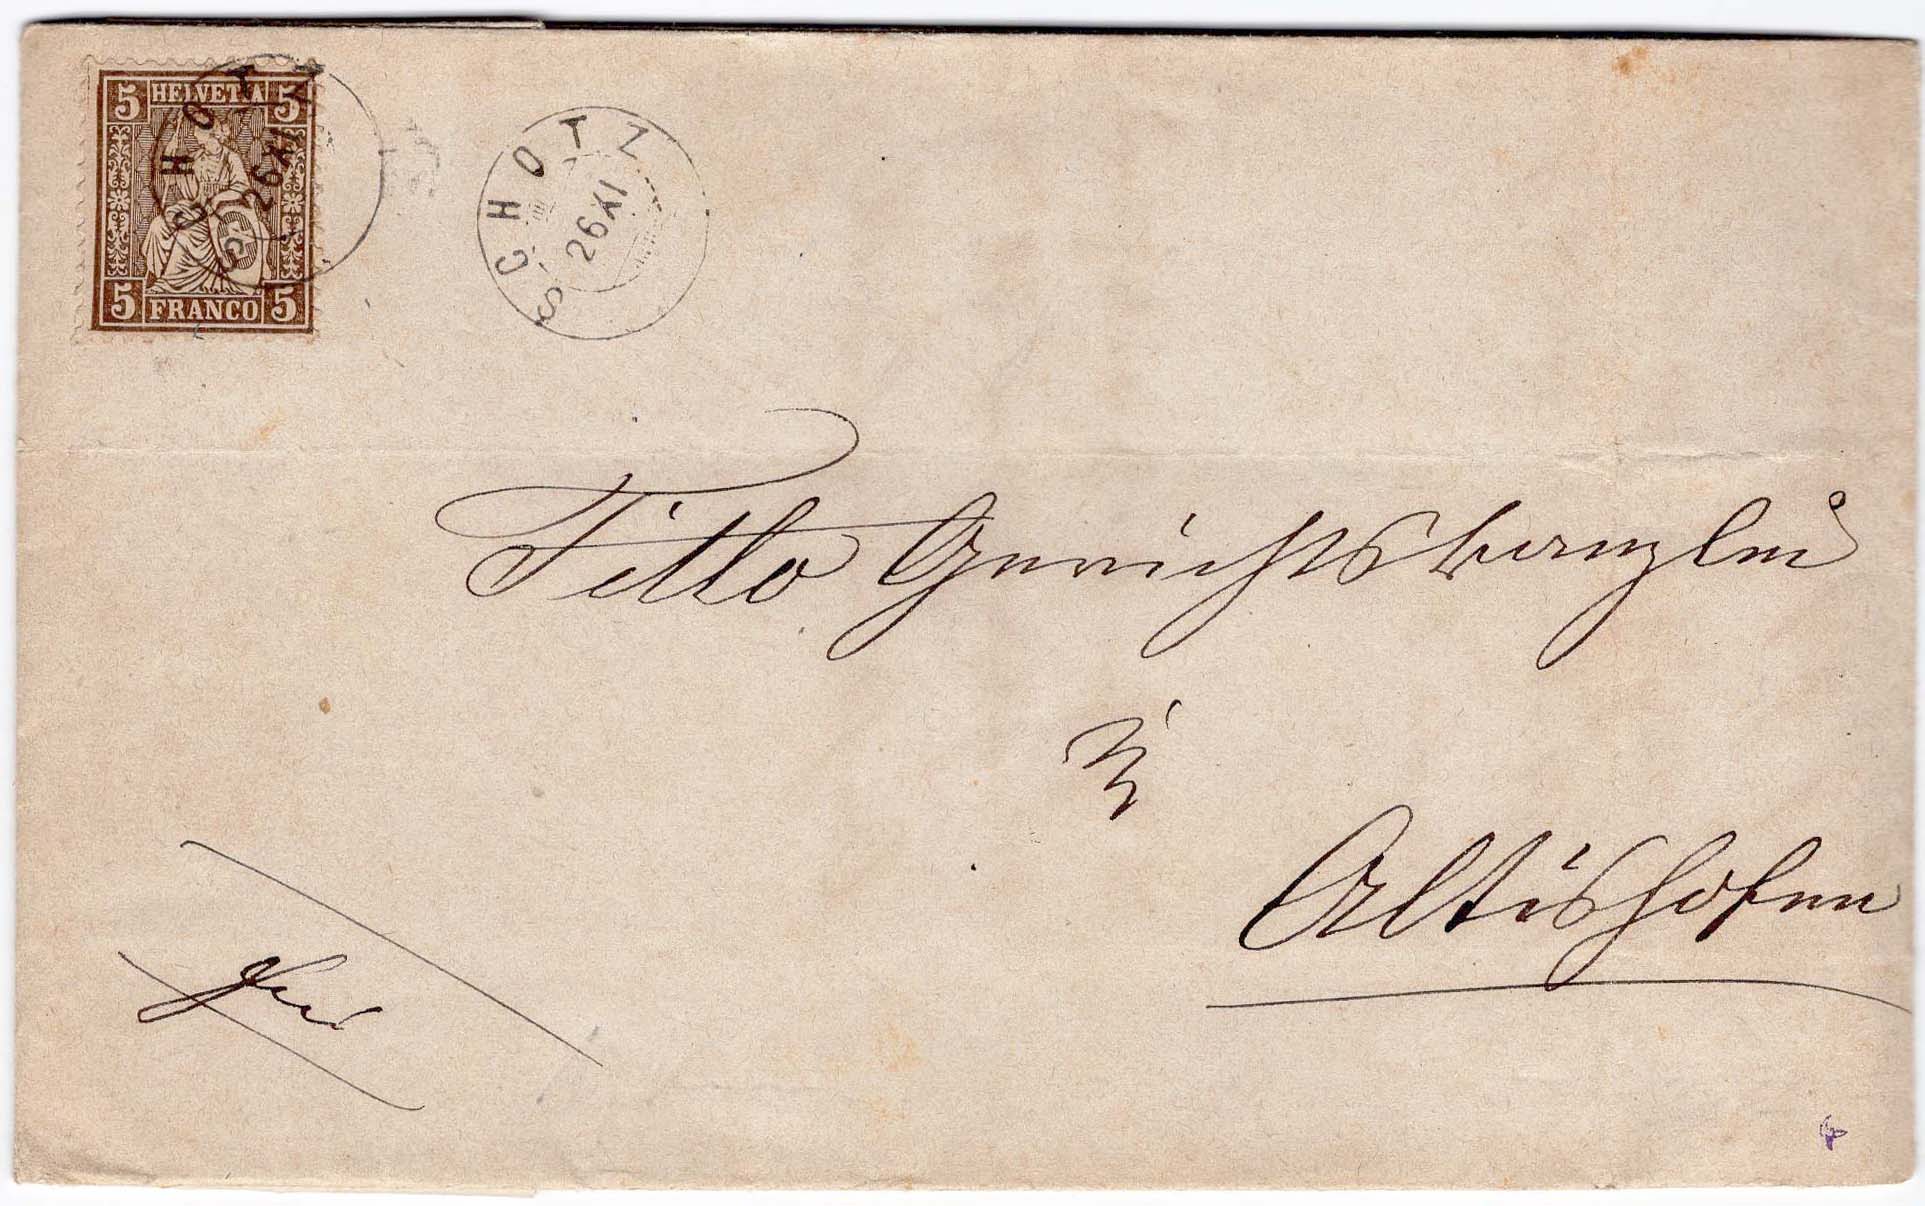 5 HELVETIA 5
5 FRANCO 5
SCHOTZ
26 XI
SCHOTZ
26 XI
Titto Gerichtskanzlei
in
Altishofen